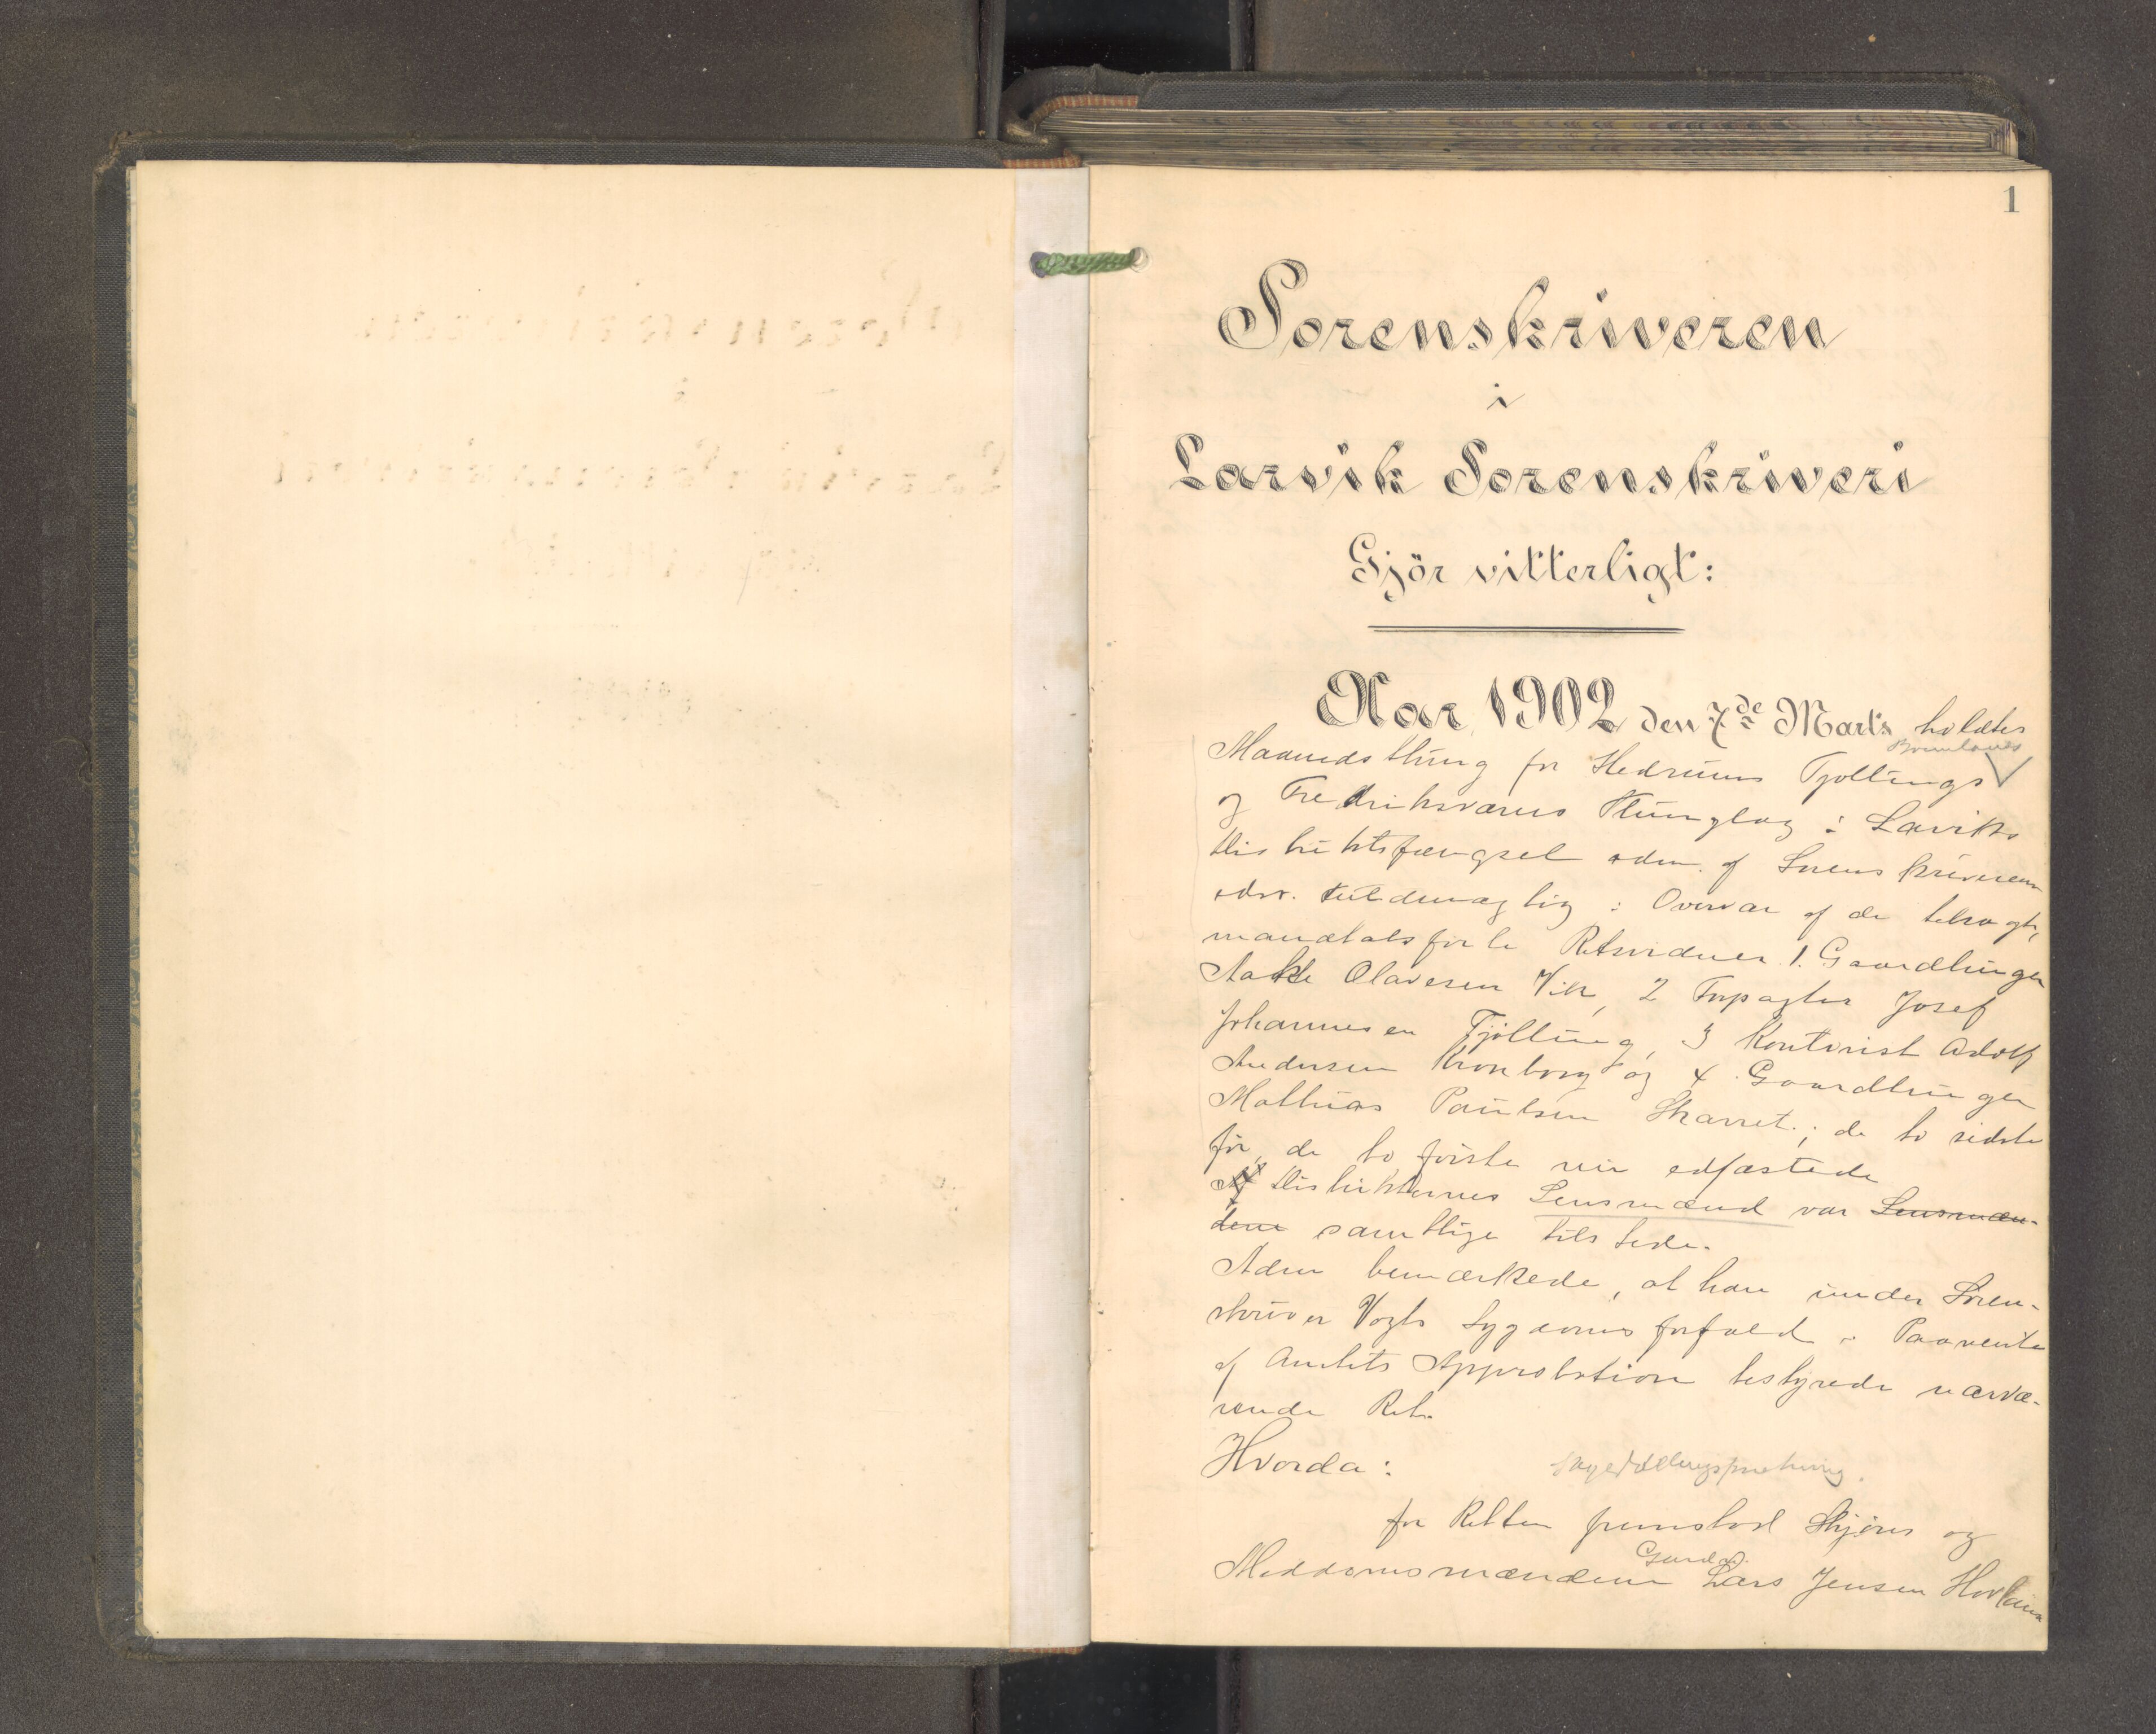 1
Sorenskriveren
i
Larvik Sorenskriveri
Gjör vitterligt:
Aar 1902 den 7de Marts holdtes
Brunlanes
Maanedsthing for Hedrums Tjöllings
og Fredriksværns Thinglag i Larviks
Distriktsfængsel adm. af Sorenskriveren
edsv. Fuldmægtig i Overvær af de tilsagte,
mandtalsførte Retsvidner 1. Gaardbruger
Olavesen Vik, 2 Forpagter Josef
Johannesen Tjölling, 3 Kontorist Adolf
Andersen Kronborg og 4 Gaardbruger
Mathias Paulsen Skarret; de to sidste
før, de to første nu edfæstede
Af Distrikternes Lensmænd var Lensmæn-
dene samtlige tilstede.
Adm bemærkede, at han under Soren-
skriver Vogts Sygdomsforfald i Paavente
af Amtets Approbation bestyrede nærvæ-
rende Ret.
Hvorda:
for Retten fremstod Skjøns og
Gaardbr.
Meddomsmændene Lars Jensen